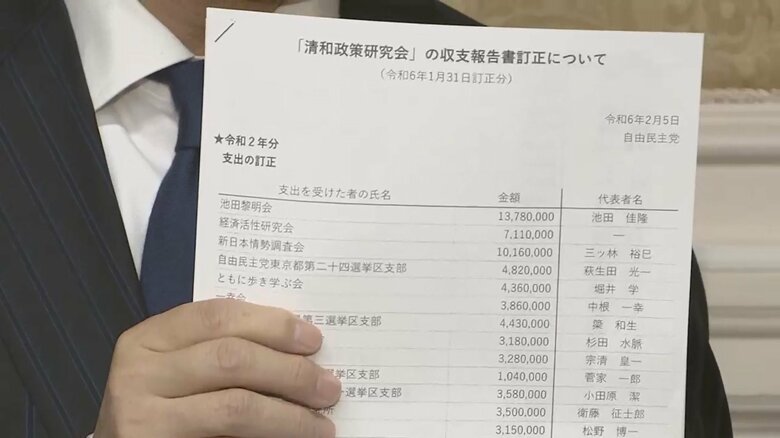 「清和政策研究会」の収支報告書訂正について
（令和6年1月31日訂正分）
令和6年2月5日
自由民主党
★令和2年分
支出の訂正
支出を受けた者の氏名 金額 代表者名
池田黎明会 13,780,000 池田 佳隆
経済活性研究会 7,110,000 ―
新日本情勢調査会 10,160,000 三ッ林 裕巳
自由民主党東京都第二十四選挙区支部 4,820,000 萩生田 光一
ともに歩き学ぶ会 4,360,000 堀井 学
一幸会 3,860,000 中根 一幸
第三選挙区支部 4,430,000 簗 和生
3,180,000 杉田 水脈
3,280,000 宗清 皇一
挙区支部 1,040,000 菅家 一郎
選挙区支部 3,580,000 小田原 潔
3,500,000 衛藤 征士郎
3,150,000 松野 博一